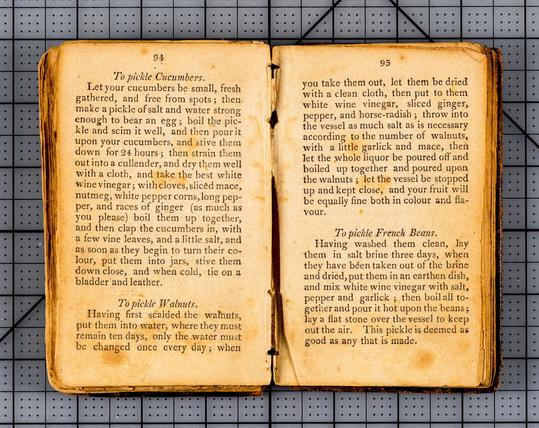 94
To pickle Cucumbers.
Let your cucumbers be small, fresh
gathered, and free from spots; then
make a pickle of salt and water strong
enough to bear an egg; boil the pic-
kle and scim it well, and then pour it
upon your cucumbers, and stive them
down for 24 hours; then strain them
out into a cullender, and dry them well
with a cloth, and take the best white
wine vinegar; with cloves, sliced mace,
nutmeg, white pepper corns, long pep-
per, and races of ginger (as much as
you please) boil them up together,
and then clap the cucumbers in, with
a few vine leaves, and a little salt, and
as soon as they begin to turn their co-
lour, put them into jars, stive them
down close, and when cold, tie on a
bladder and leather.
To pickle Walnuts.
Having first scalded the walnuts,
put them into water, where they must
remain ten days, only the water must
be changed once every day; when
95
you take them out, let them be dried
with a clean cloth, then put to them
white wine vinegar, sliced ginger,
pepper, and horse-radish; throw into
the vessel as much salt as is necessary
according to the number of walnuts,
with a little garlick and mace, then
let the whole liquor be poured off and
boiled up together and poured upon
the walnuts; let the vessel be stopped
up and kept close, and your fruit will
be equally fine both in colour and fla-
vour.
To pickle French Beans.
Having washed them clean, lay
them in salt brine three days, when
they have been taken out of the brine
and dried, put them in an earthen dish,
and mix white wine vinegar with salt,
pepper and garlick; then boil all to-
gether and pour it hot upon the beans;
lay a flat stone over the vessel to keep
out the air. This pickle is deemed as
good as any that is made.